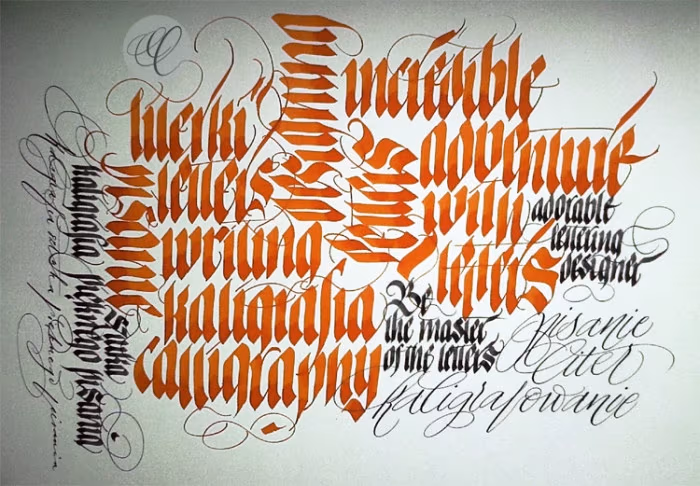 literki
letters
writing
kaligrafia
calligraphy
pisanie
incredible
adventure
with
letters
adorable
lettering
designer
Be
the master
of the letters
pisanie
liter
kaligrafowanie
sztuka
kaligrafia pięknego pisania